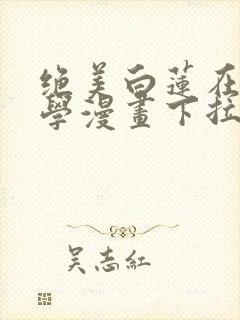 绝美白蓮在
學漫畫下拉
吴志紅